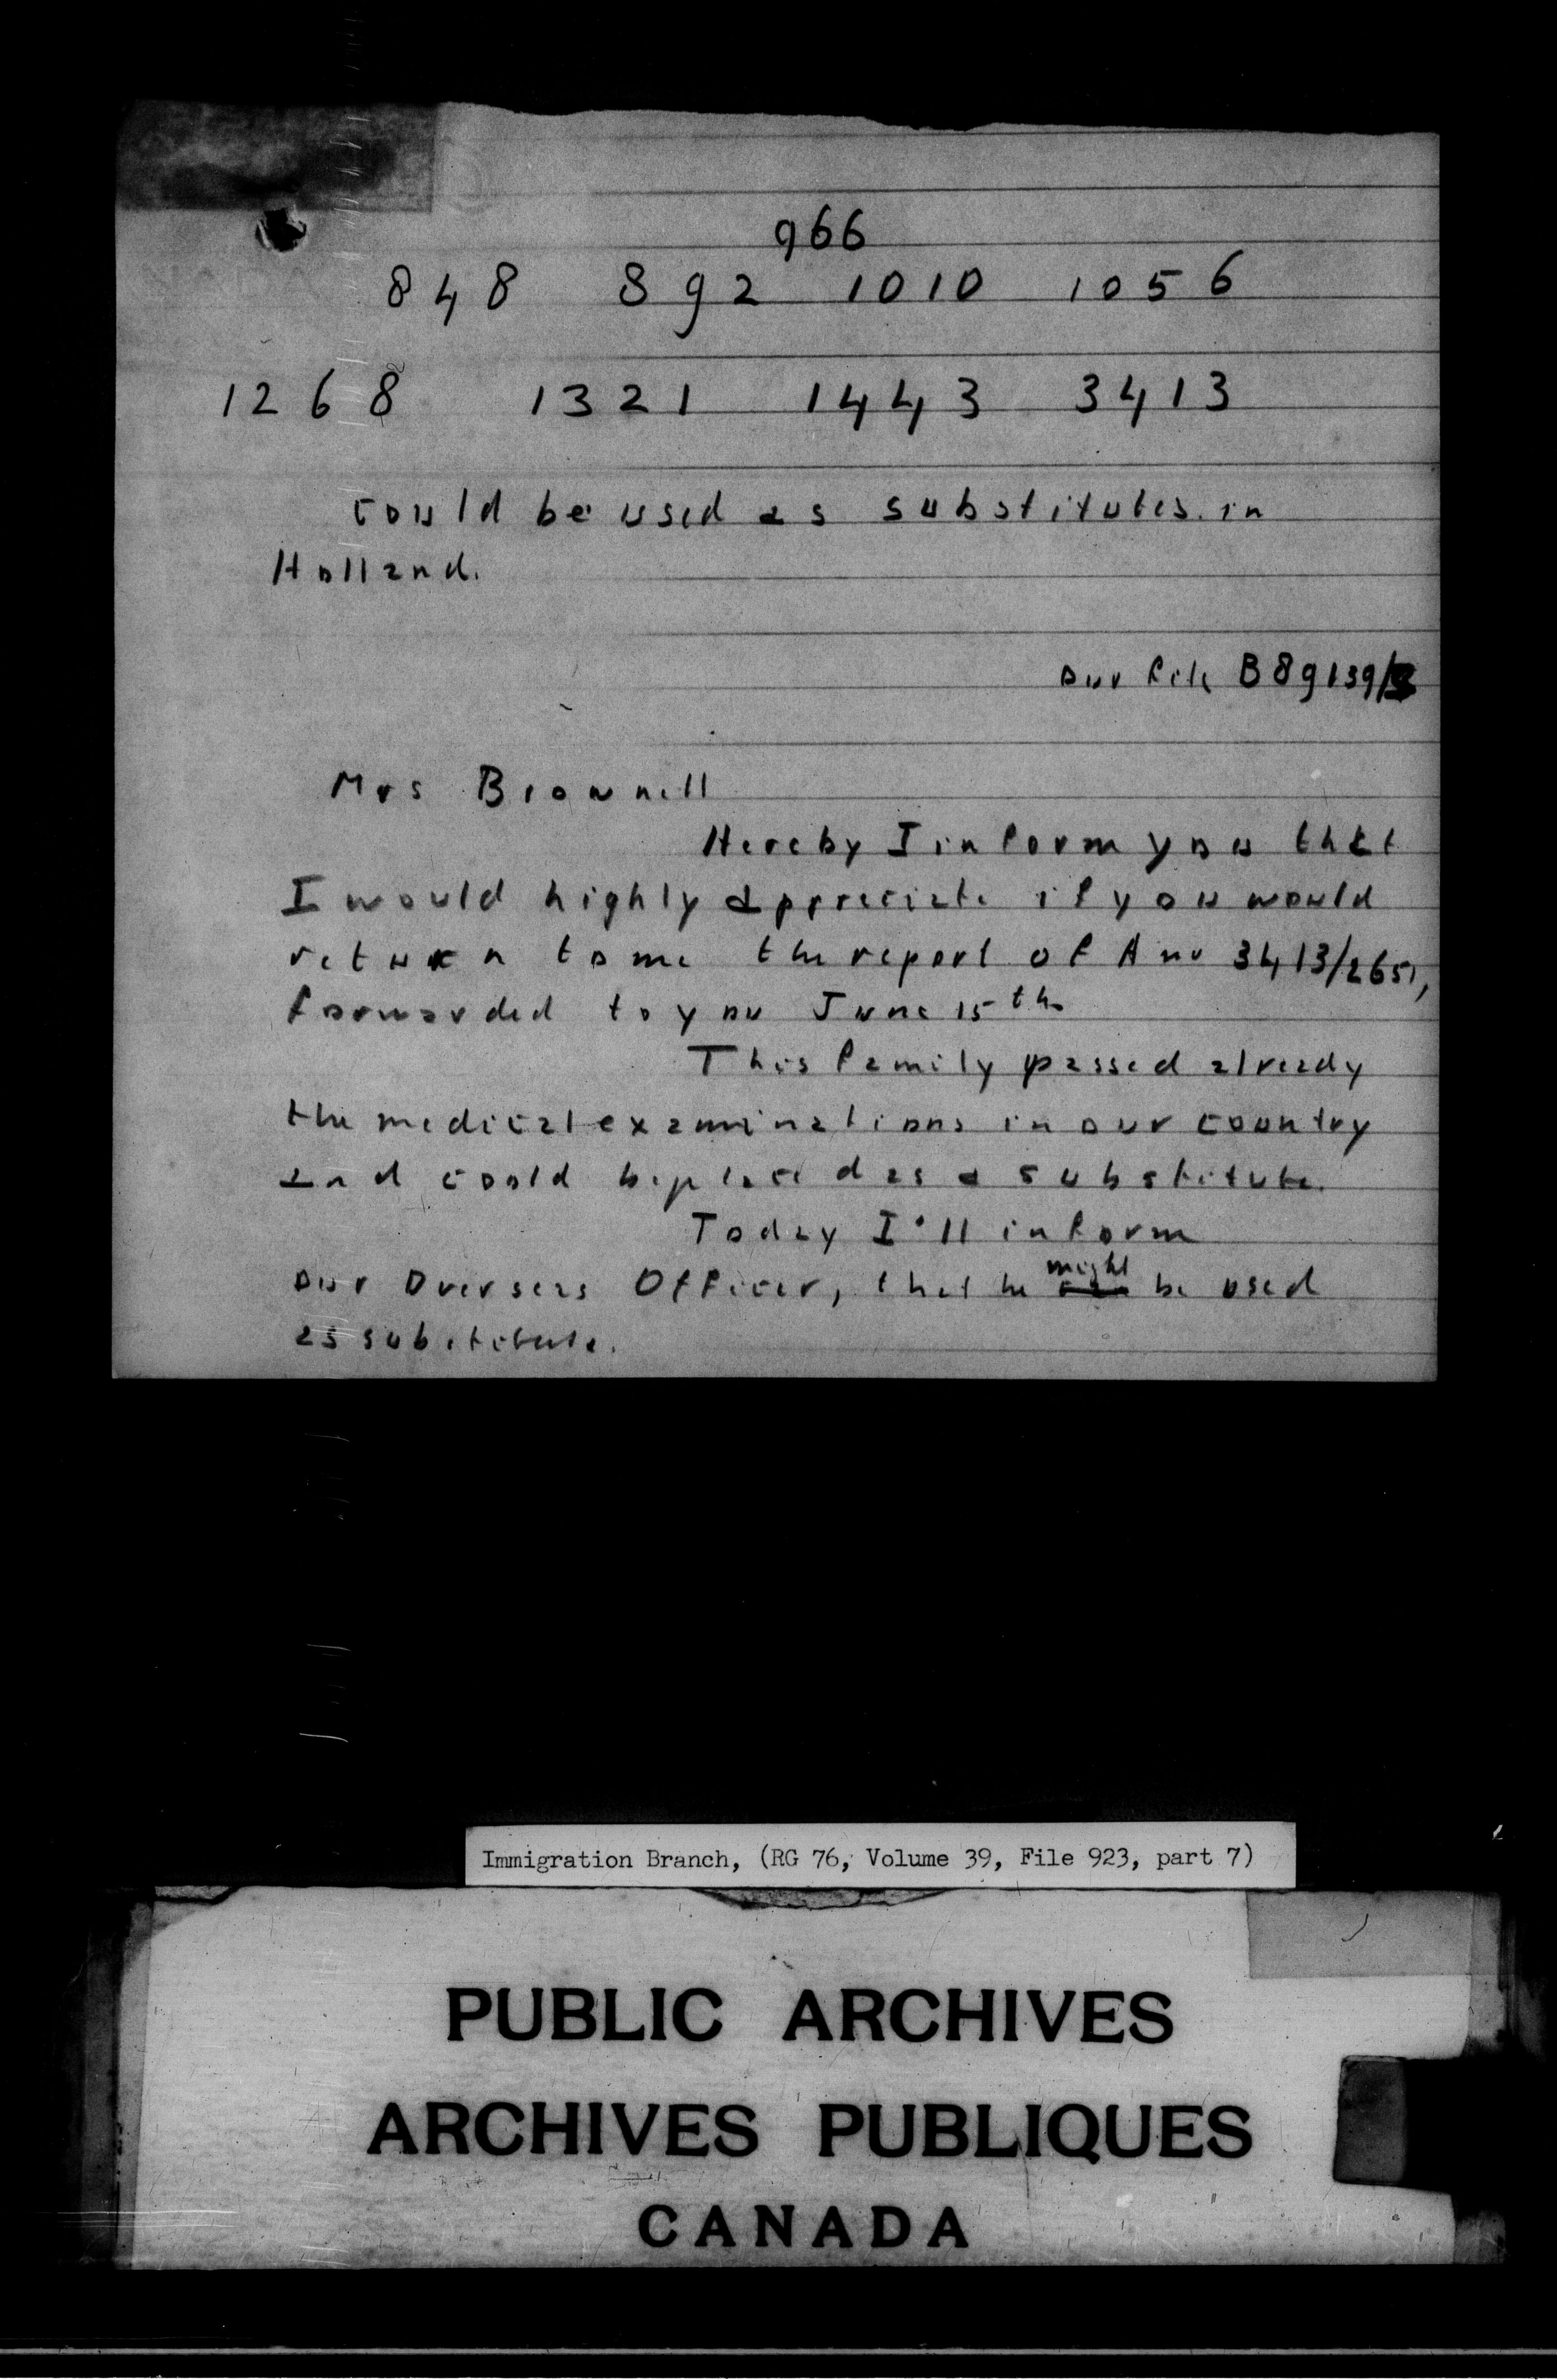 966
848 892 1010 1056
1268 1321 1443 3413
could be used as substitutes in
Holland.
our file B89139/3
Mrs Brownell
Hereby I inform you that
I would highly appreciate if you would
return to me the report of A nr 3413/2651,
forwarded to you June 15th
This family passed already
the medical examinations in our country
and could be placed as a substitute.
Today I'll inform
might
our Overseas Officer, that he be used
as substitute.
Immigration Branch, (RG 76, Volume 39, File 923, part 7)
PUBLIC ARCHIVES
ARCHIVES PUBLIQUES
CANADA